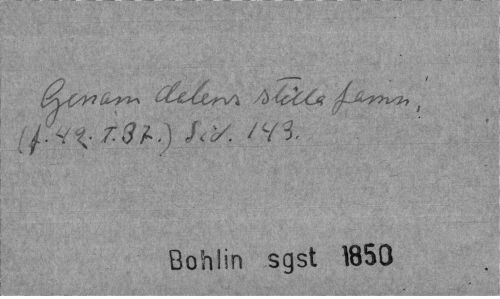 Genom dalens stilla famn,
(f. 42. T. 37.) Sid. 143.
Bohlin sgst 1850